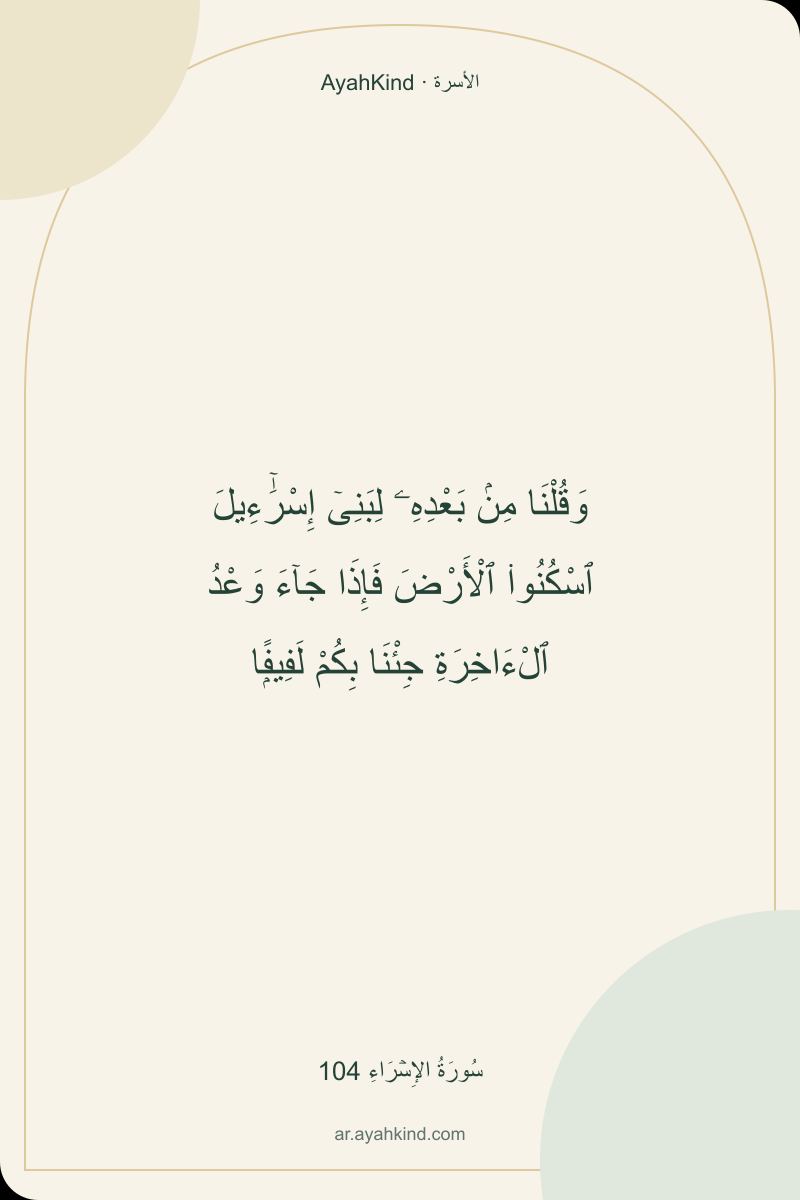 AyahKind · الأسرة
وَقُلْنَا مِنۢ بَعْدِهِۦ لِبَنِىٓ إِسْرَٰٓءِيلَ
ٱسْكُنُوا۟ ٱلْأَرْضَ فَإِذَا جَآءَ وَعْدُ
ٱلْءَاخِرَةِ جِئْنَا بِكُمْ لَفِيفًۭا
سُورَةُ الإِسۡرَاءِ 104
ar.ayahkind.com